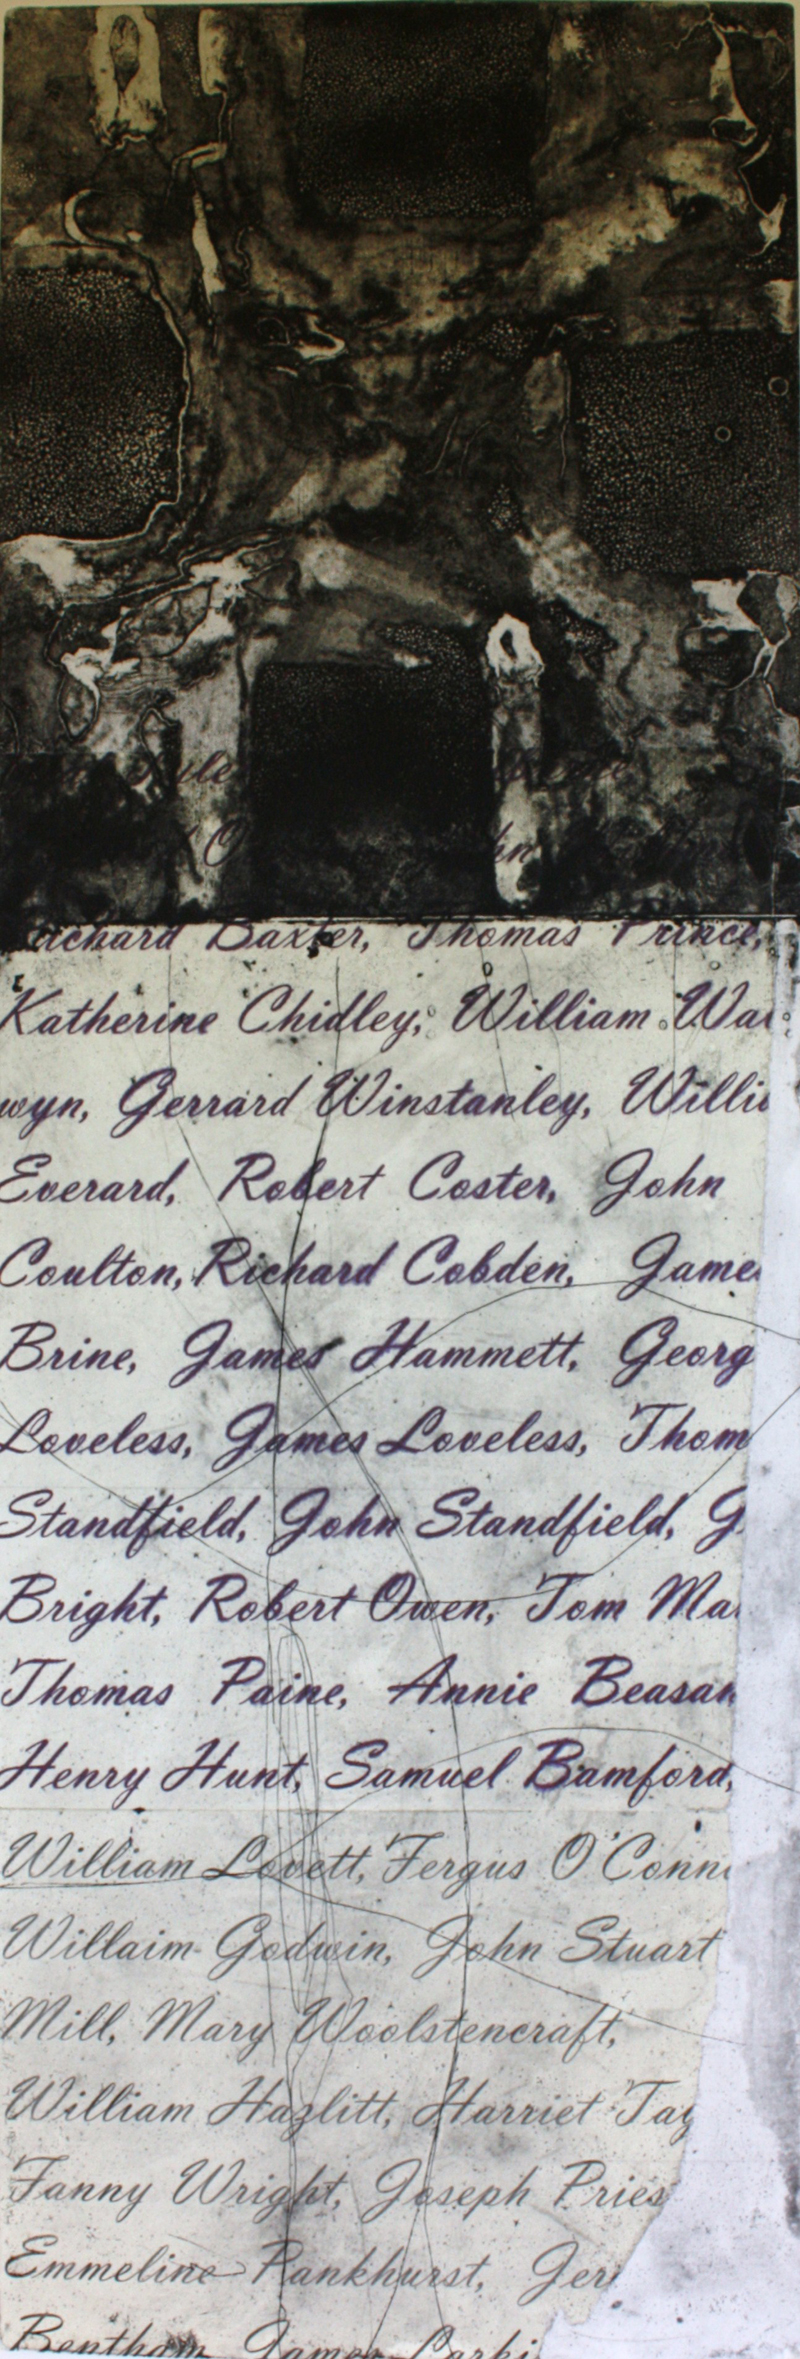 Richard Baxter, Thomas Prince,
Katherine Chidley, William Wal
wyn, Gerrard Winstanley, Willi
Everard, Robert Coster, John
Coulton, Richard Cobden, James
Brine, James Hammett, Georg
Loveless, James Loveless, Thom
Standfield, John Standfield, J
Bright, Robert Owen, Tom Ma
Thomas Paine, Annie Beasan
Henry Hunt, Samuel Bamford,
William Lovett, Fergus O'Conn
Willaim Godwin, John Stuart
Mill, Mary Woolstencraft,
William Hazlitt, Harriet Tay
Fanny Wright, Joseph Pries
Emmeline Pankhurst, Jer
Bentham James Larki